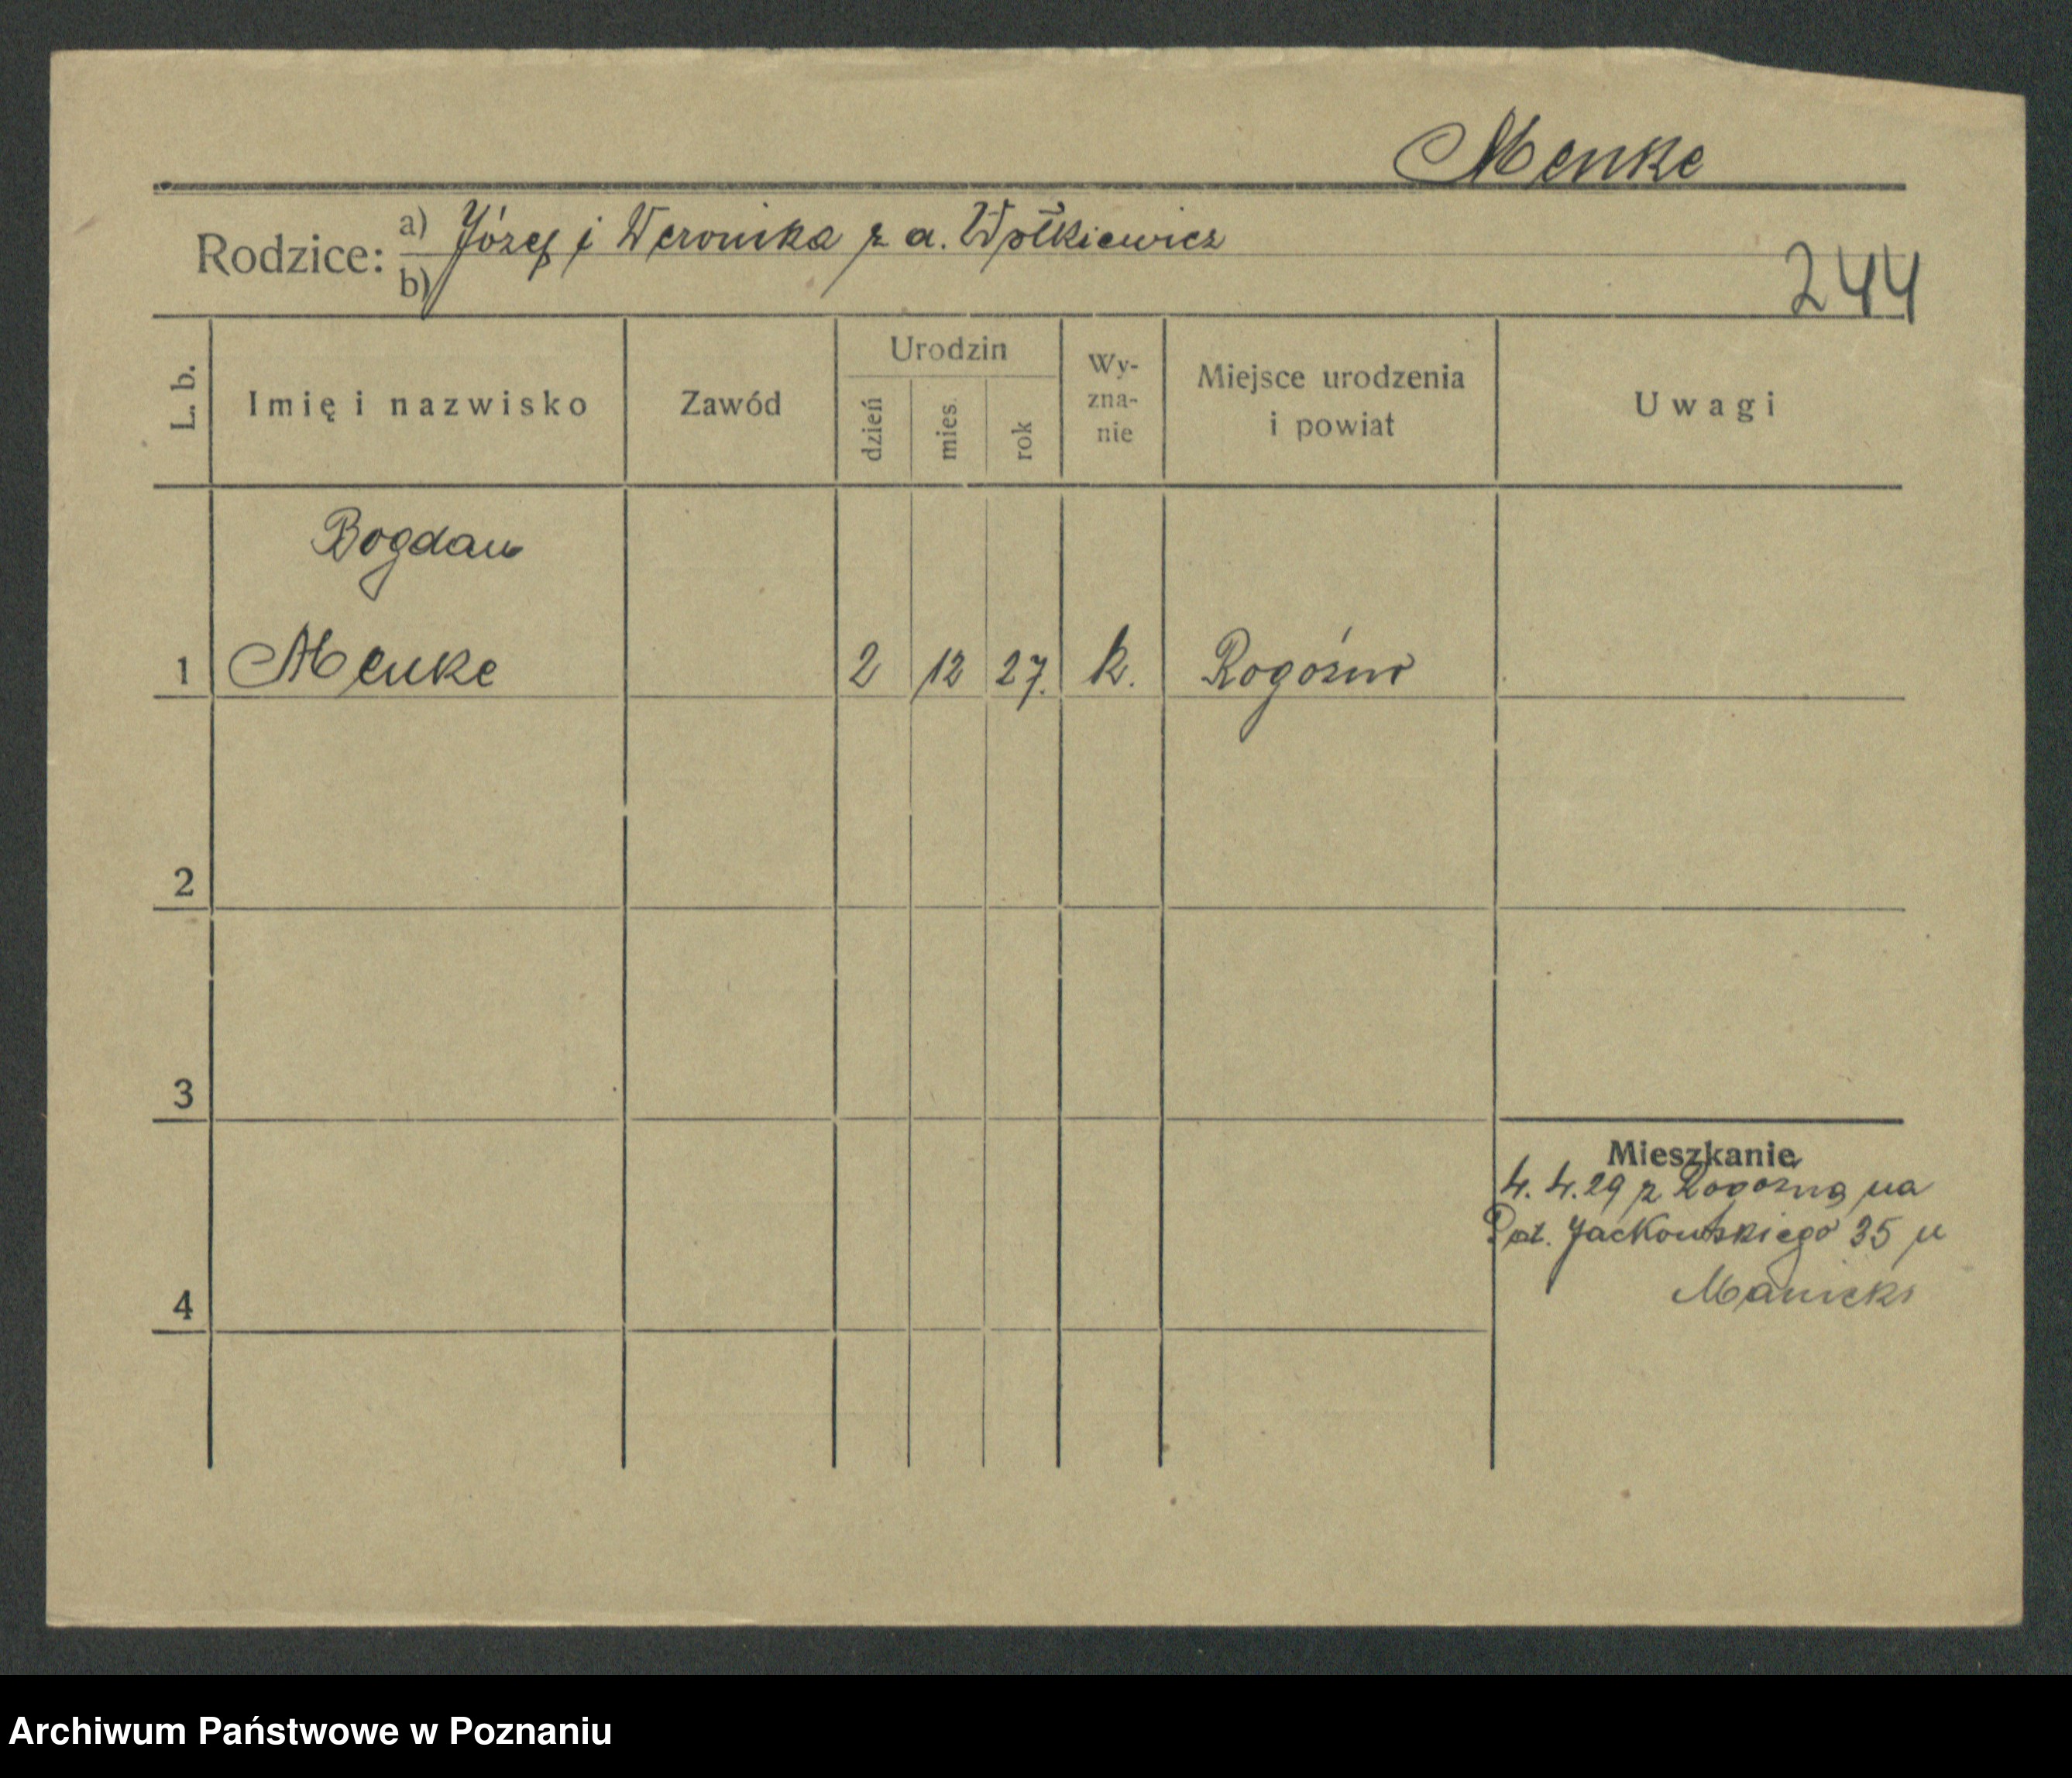 Menke
Rodzice: a) Józef i Weronika z d. Wołkiewicz
b)
244
L. b.
Imię i nazwisko
Zawód
Urodzin
dzień
mies.
rok
Wy-
zna-
nie
Miejsce urodzenia
i powiat
Uwagi
Bogdan
1 Menke 2 12 27. k. Rogoźno
2
3
Mieszkanie
4. 4. 29 z Rogoźna na
Pat. Jackowskiego 35 u
4
Archiwum Państwowe w Poznaniu